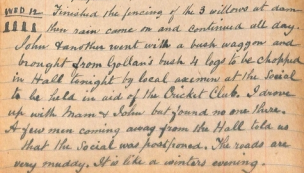 WED 12. Finished the fencing of the 3 willows at dam
then rain came on and continued all day.
John & another went with a bush waggon and
brought from Gollan's bush 4 logs to be chopped
in Hall tonight by local axemen at the Social
to be held in aid of the Cricket Club. I drove
up with Mam & John but found no one there.
A few men coming away from the Hall told us
that the Social was postponed. The roads are
very muddy. It is like a winters evening.